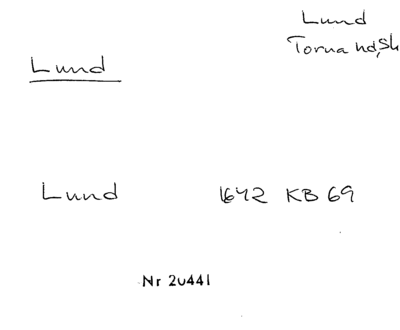 Lund
Torna hd, Sk
Lund
Lund 1642 KB 69
Nr 20441